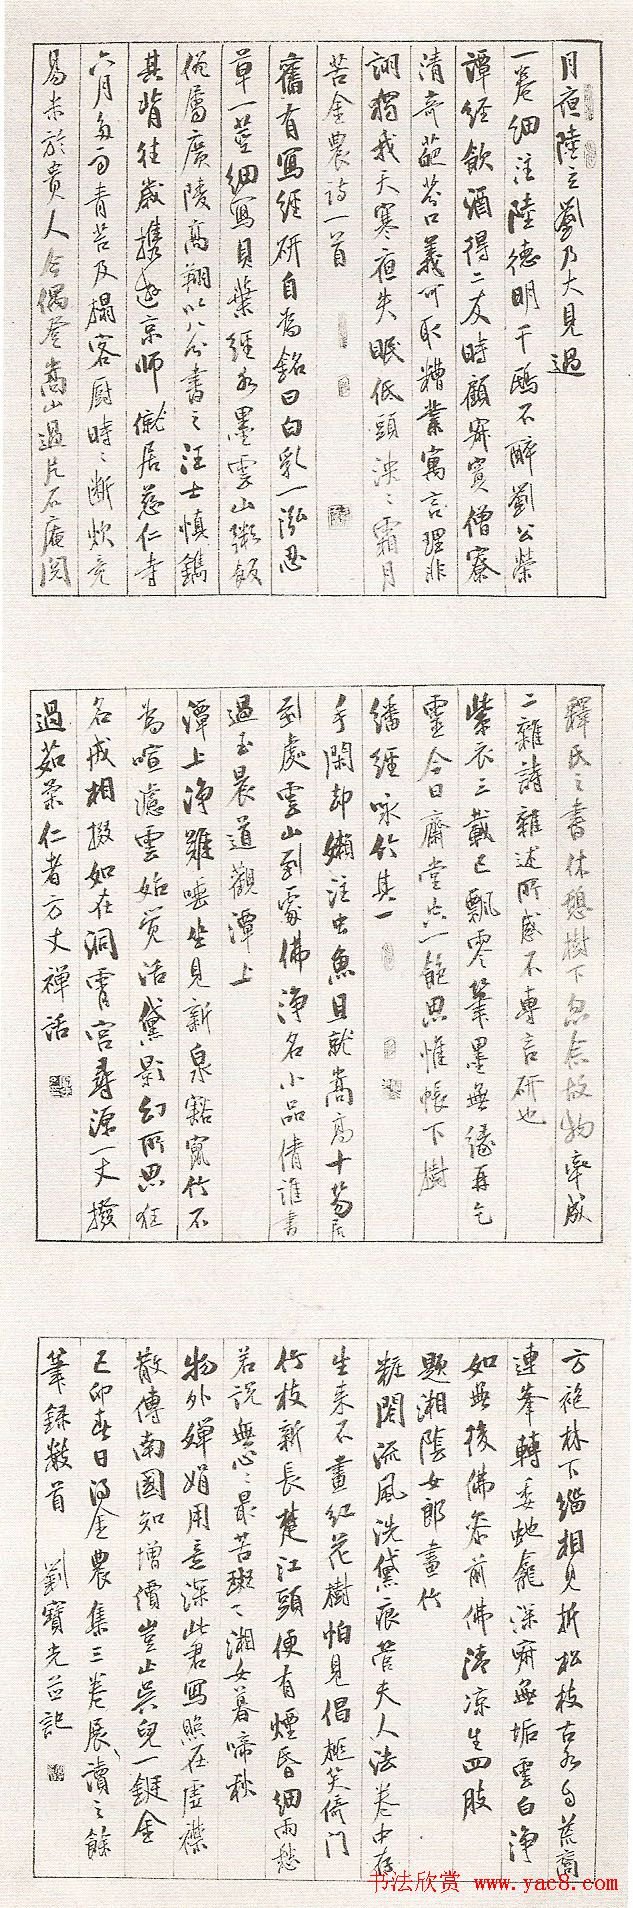 月夜陸立劉乃大見過
一卷細注陸德明千鷗不醉劉公榮
譚經飲酒得二友時顧寂寞僧寮
清奇葩芬口義可取糟業寓言理非
詡獨我天寒夜失眠低頭泱泱霜月
苦金農詩一首
舊有寫經研自為銘曰白乳一泓忍
草一莖細寫貝葉經水墨雲山粥飯
僧屬廣陵高翔以八分書之汪士慎鐫
其背往歲攜遊京師僦居慈仁寺
六月多雨青苔及榻客廚時時斷炊竟
易米於貴人今偶登嵩山過片石庵閱
釋氏之書休憩樹下忽念故物率成
二雜詩雜述所感不專言研也
紫衣三載已飄零筆墨無緣再乞
靈今日齋堂共一飽思惟帳下樹
繙經咏竹其一
手閑却嬾注虫魚且就嵩高十笏居
到處雲山到處佛淨名小品倩誰書
過玉晨道觀潭上
潭上淨難唾坐見新泉豁竄竹不
為喧濾雲始覺活黛影幻所思狂
名戒相掇如在洞霄宮尋源一丈撥
過茹菜仁者方丈禪話
方袍林下緇相見折松枝古水自荒裔
連峯轉委虵龕深窅無垢雲白淨
如無後佛參前佛清涼生四肢
題湘陰女郎畫竹
粧閣流風洗黛痕管夫人法卷中存
生来不畫紅花樹怕見倡桃笑倚門
竹枝新長楚江頭便有煙昏細雨愁
若說無心心最苦斑斑湘女暮啼秋
物外嬋娟用意深此君寫照在虛襟
散傳南國知增價豈止吳兒一鋌金
己卯春日得金農集三卷展讀之餘
筆録數首 劉寶光並記
书法欣赏 www.yac8.com